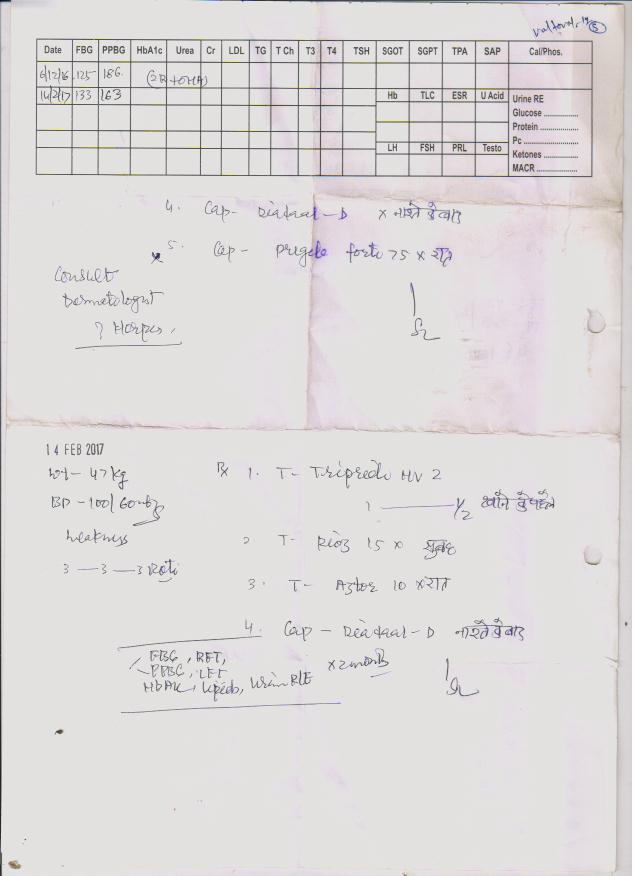 Date FBG PPBG HbA1c Urea Cr LDL TG T Ch T3 T4 TSH SGOT SGPT TPA SAP Cal/Phos.
6/12/16 125 186 (2R + OHA)
14/2/17 133 163
Hb TLC ESR U Acid Urine RE
Glucose ..................
Protein ..................
Pc ..................
LH FSH PRL Testo
Ketones ..................
MACR ..................
4. Cap - D x नाश्ते के बाद
x 5. Cap - forte 75 x रात
Consult
Dermatologist
? Herpes
14 FEB 2017
Wt - 47 kg
BP - 100/60
Weakness
3 — 3 — 3 Roti
Rx 1. T - Tripride HV 2
1 ——— 1/2 खाने के पहले
2 T - 15 x सुबह
3. T - Aztor 10 x रात
4. Cap - D नाश्ते के बाद
FBG, RFT,
PPBG, LFT
HbA1c, Lipids, Urine R/E
x 2 months